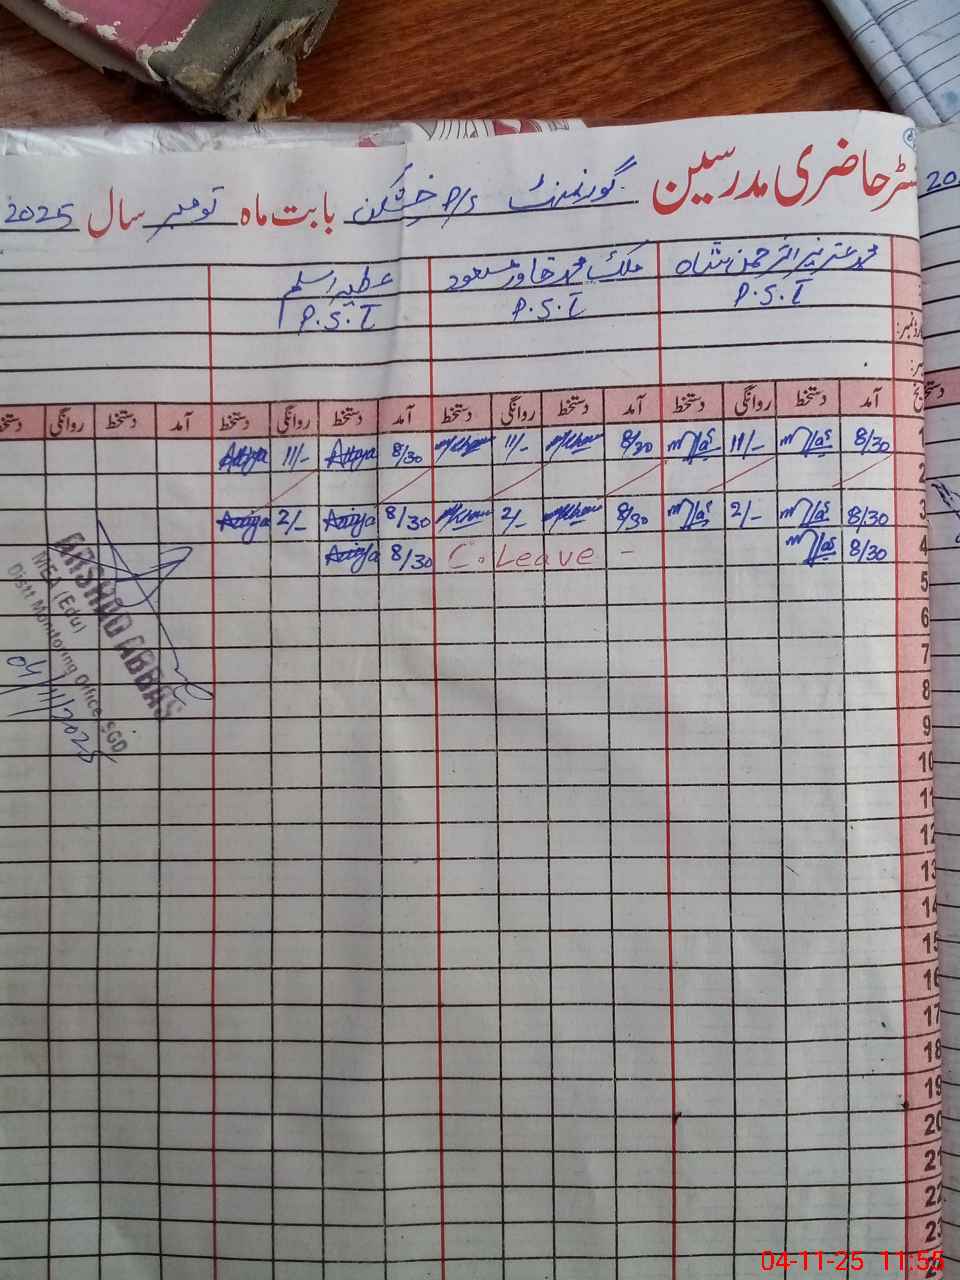 سٹر حاضری مدرسین گورنمنٹ P/S بابت ماہ نومبر سال 2025
20
محمد عزیر الرحمن شاہ ملک محمد خاور مسعود عطیہ اسلم
P.S.T P.S.T P.S.T
آمد دستخط روانگی دستخط آمد دستخط روانگی دستخط آمد دستخط روانگی دستخط آمد دستخط روانگی
1 8/30 11/- 8/30 11/- 8/30 Attiya 11/- Attiya
2
3 8/30 2/- 8/30 2/- 8/30 Attiya 2/- Attiya
4 8/30 C. Leave - 8/30 Attiya
5
6
7
8
9
10
11
12
13
14
15
16
17
18
19
20
21
22
23
ARSHAD ABBAS
MEA (Edu)
Distt Monitoring Office, SGD
04/11/2025
04-11-25 11:55